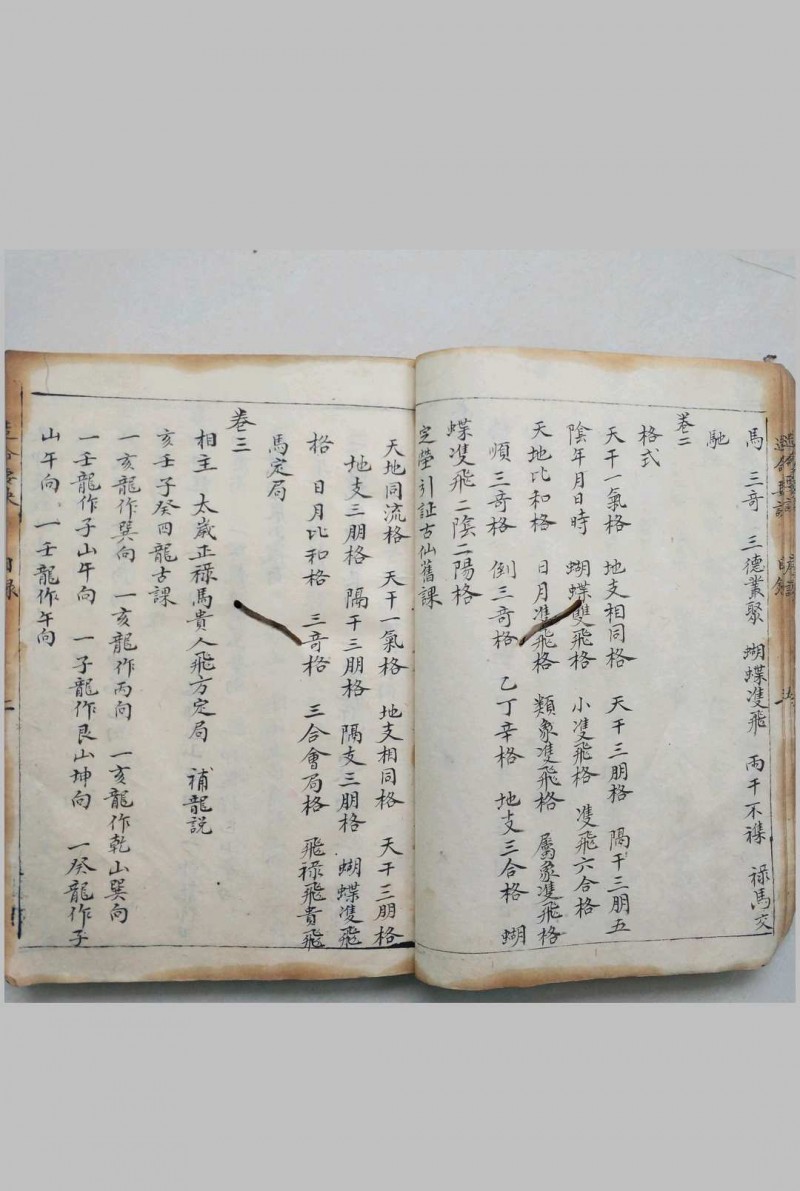 馬　三奇　三德叢聚　蝴蝶䨇飛　兩干不襍　祿馬交
馳
卷二
格式
天干一氣格　地支相同格　天干三朋格　隔干三朋五
陰年月日時　蝴蝶雙飛格　小䨇飛格　䨇飛六合格
天地比和格　日月䨇飛格　類象䨇飛格　屬象䨇飛格
順三竒格　倒三竒格　乙丁辛格　地支三合格　蝴
蝶䨇飛　二陰二陽格
定塋引証古仙舊課
天地同流格　天干一氣格　地支相同格　天干三朋格
地支三朋格　隔干三朋格　隔支三朋格　蝴蝶䨇飛
格　日月比和格　三竒格　三合會局格　飛祿飛貴飛
馬定局
卷三
相主　太歲正祿馬貴人飛方定局　補龍説
亥壬子癸四龍古課
一亥龍作巽向　一亥龍作丙向　一亥龍作乾山巽向
一壬龍作子山午向　一子龍作艮山坤向　一癸龍作子
山午向　一壬龍作午向